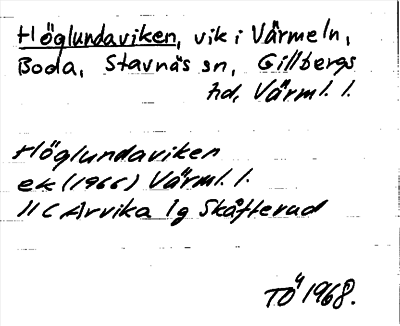 Höglundaviken, vik i Värmeln,
Boda, Stavnäs sn, Gillbergs
hd, Värml. l.
Höglundaviken
ek (1966) Värml. l.
11C Arvika 1g Skåfterud
TÖ 1968.